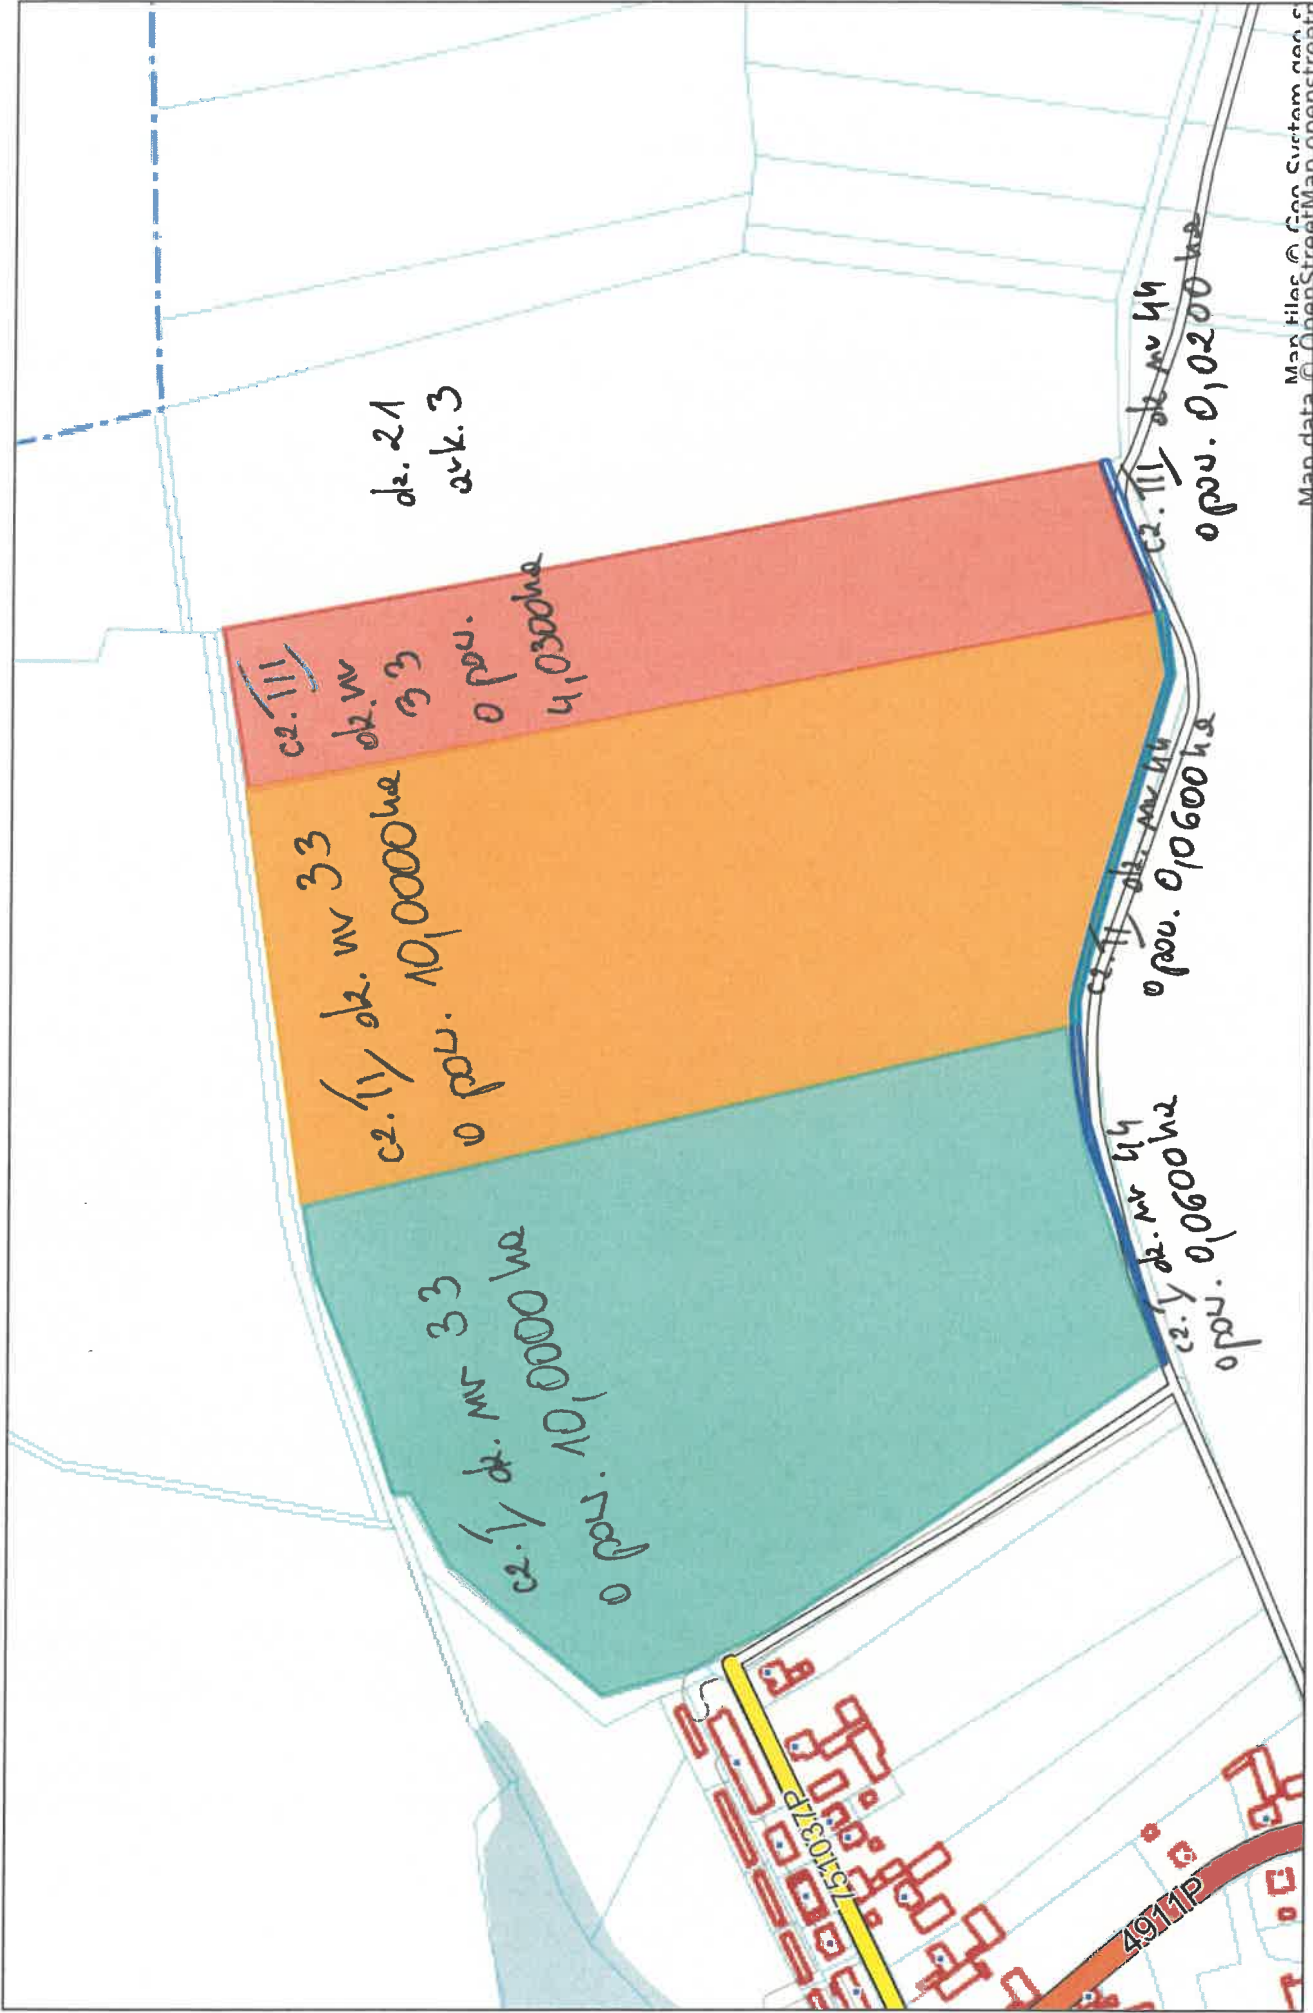 dz. 21
ark. 3
cz. III
dz. nr
33
o pow.
4,0300ha
cz. II dz. nr 33
o pow. 10,0000ha
cz. I dz. nr 33
o pow. 10,0000 ha
cz. III dz nr 44
o pow. 0,0200 ha
cz. II dz. nr 44
o pow. 0,0600 ha
cz. I dz. nr 44
o pow. 0,0600ha
751037P
4911P
Map tiles © Geo System
Map data © OpenStreetMap